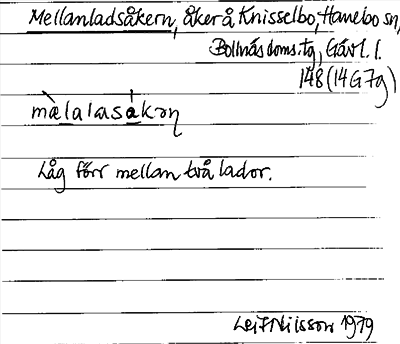 Mellanladsåkern, åker å Knisselbo, Hanebo sn,
Bollnäs doms. tg, Gävl. l.
148 (14G7g)
mælalasåkəɳ
Låg förr mellan två lador.
Leif Nilsson 1979